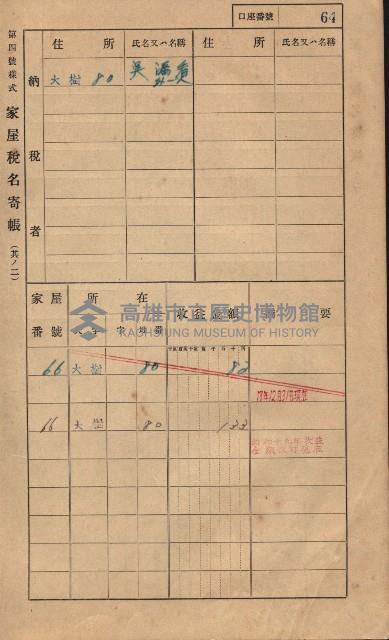 口座番號 64
第四號樣式 家屋稅名寄帳（其ノ二）
住所 氏名又ハ名稱 住所 氏名又ハ名稱
納稅者
大樹 80 吳
家屋番號 所在 大字 字 地番 收益金額 摘要
高雄市立歷史博物館
KAOHSIUNG MUSEUM OF HISTORY
66 大樹 80 82
18年12月31日現在
66 大樹 80 133